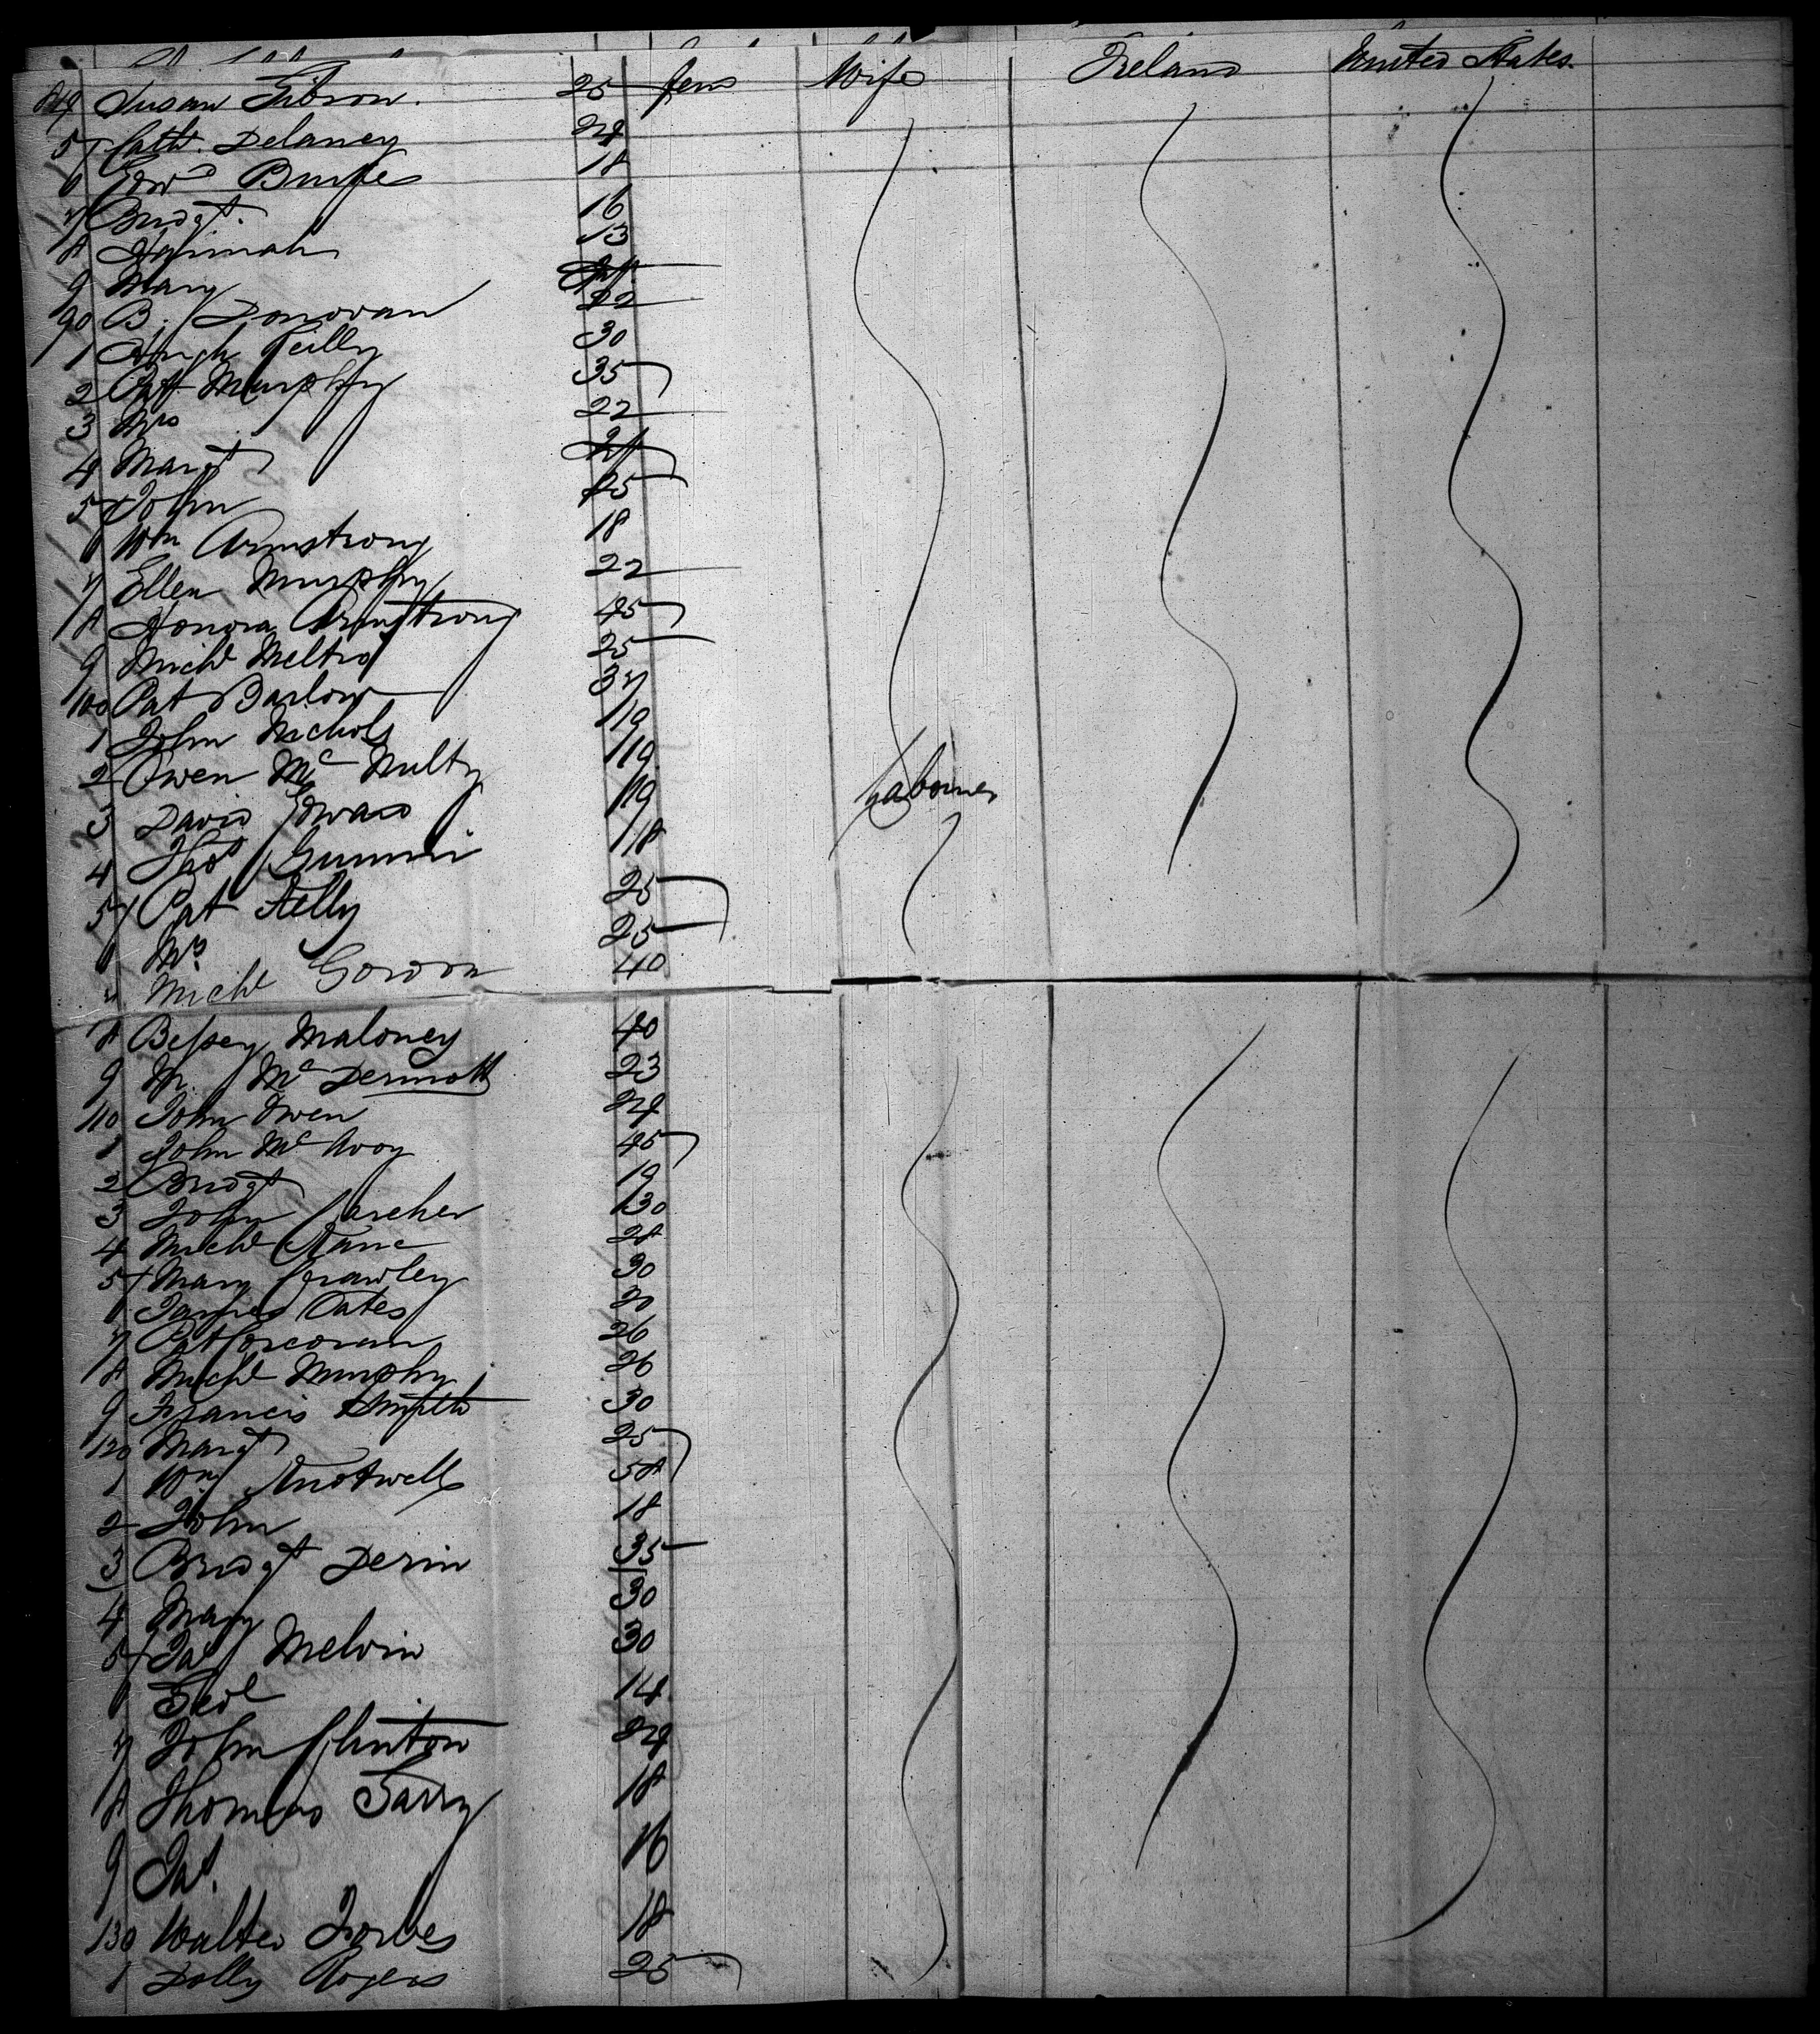 84 Susan Gibson. 25 fem Wife Ireland United States.
5 Cath. Delaney 24
6 Edwd Burke 18
7 Bridgt. 16
8 Hannah 13
9 Mary
90 B. Donovan 22
1 Hugh Reilly 30
2 Patt Murphy 35
3 Mrs 22
4 Margt
5 John 25
6 Wm Armstrong 18
7 Ellen Murphy 22
8 Honora Armstrong 45
9 Michl 25
100 Pat Barlow 37
1 John Nichols 19
2 Owen Mc Nulty 19
3 David Edward 19 Labourer
4 Thos 18
5 Pat Kelly 25
6 Mrs 25
7 Michl Gordon 40
8 Bessey Maloney 40
9 M. Mc Dermott 23
110 John Owen 24
1 John Mc Avoy 45
2 Bridgt 19
3 John Larcher 30
4 Michl Kane 28
5 Mary Crawley 30
6 James Oates 20
7 Pat Corcoran 26
8 Michl Murphy 26
9 Francis Smith 30
120 Margt 25
1 Wm 58
2 John 18
3 Bridgt Derin 35
4 Mary 30
5 Jas Melvin 30
6 14
7 John Clinton 24
8 Thomas Garry 18
9 Jas. 16
130 Walter Forbes 18
1 Dolly Rogers 25